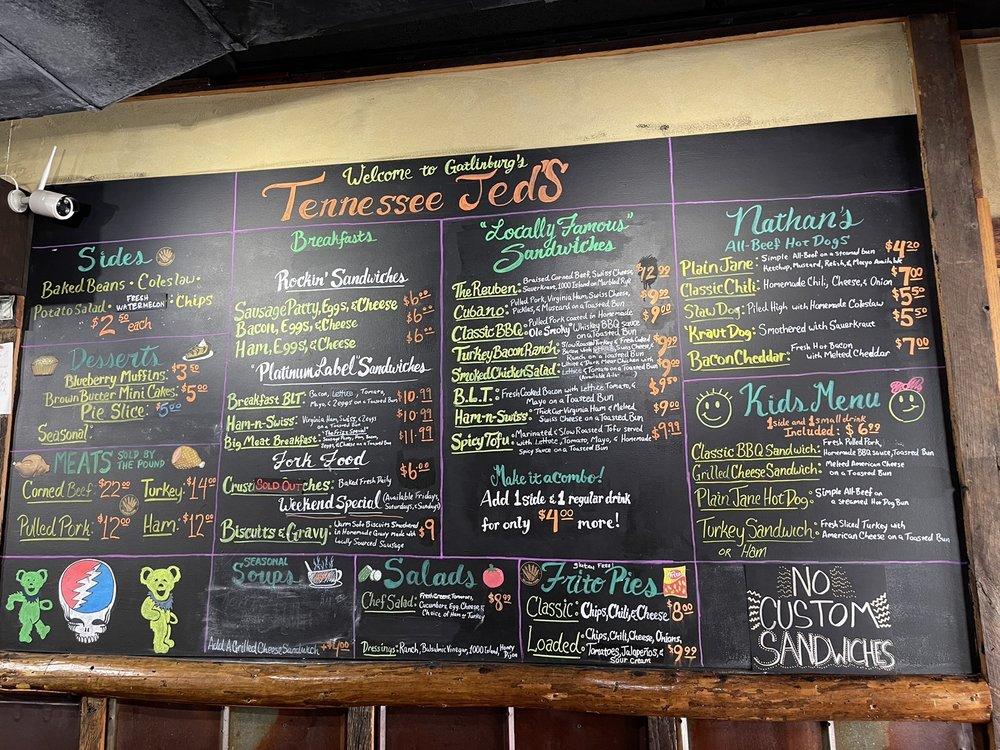 Welcome to Gatlinburg's
Tennessee Jed'S
Sides
Baked Beans • Coleslaw •
Potato Salad • FRESH WATERMELON • Chips
$2.50 each
Desserts
Blueberry Muffins: $3.50
Brown Butter Mini Cakes: $5.00
Pie Slice: $5.00
Seasonal
MEATS SOLD BY THE POUND
Corned Beef: $22.00 Turkey: $14.00
Pulled Pork: $12.00 Ham: $12.00
Breakfasts
Rockin' Sandwiches
Sausage Patty, Eggs, & Cheese $6.00
Bacon, Eggs, & Cheese $6.00
Ham, Eggs, & Cheese $6.00
"Platinum Label" Sandwiches
Breakfast BLT: Bacon, Lettuce, Tomato, $10.99
Mayo, & 2 eggs on a Toasted Bun
Ham-n-Swiss: Virginia Ham, Swiss, & 2 eggs $10.99
on a Toasted Bun
Big Meat Breakfast: Sausage Patty, Ham, Bacon, $11.99
2 eggs & Cheese on a Toasted Bun
Fork Food
Crusti SOLD OUT ches: Baked Fresh Daily $6.00
Weekend Special (Available Fridays,
Saturdays, & Sundays)
Biscuits & Gravy: Warm Soft Biscuits Smothered $9
in Homemade Gravy made with
Locally Sourced Sausage
"Locally Famous"
Sandwiches
The Reuben: Braised Corned Beef, Swiss Cheese, $12.99
Sauerkraut, 1000 Island on Marbled Rye
Cubano: Pulled Pork, Virginia Ham, Swiss Cheese, $9.99
Pickles, & Mustard on a Toasted Bun
Classic BBQ: Pulled Pork coated in Homemade $9.00
"Ole Smoky" Whiskey BBQ sauce
on a Toasted Bun
Turkey Bacon Ranch: Slow Roasted Turkey & Fresh Cooked $9.99
Bacon with Lettuce, Swiss Cheese, &
Ranch on a Toasted Bun
Smoked Chicken Salad: White & Dark Meat Chicken with $9.99
Lettuce & Tomato on a Toasted Bun
B.L.T.: Fresh Cooked Bacon with Lettuce, Tomato, & $9.50
Mayo on a Toasted Bun
Ham-n-Swiss: Thick Cut Virginia Ham & Melted $9.00
Swiss Cheese on a Toasted Bun
Spicy Tofu: Marinated & Slow Roasted Tofu served $9.99
with Lettuce, Tomato, Mayo, & Homemade
Spicy Sauce on a Toasted Bun
Make it a combo!
Add 1 side & 1 regular drink
for only $4.00 more!
Nathan's
All-Beef Hot Dogs
Plain Jane: Simple All-Beef on a steamed bun $4.20
Ketchup, Mustard, Relish, & Mayo Available
Classic Chili: Homemade Chili, Cheese, & Onion $7.00
Slaw Dog: Piled High with Homemade Coleslaw $5.50
'Kraut Dog: Smothered with Sauerkraut $5.50
Bacon Cheddar: Fresh Hot Bacon $7.00
with Melted Cheddar
Kids Menu
1 side and 1 small drink
Included: $6.99
Classic BBQ Sandwich: Fresh Pulled Pork,
Homemade BBQ Sauce, Toasted Bun
Grilled Cheese Sandwich: Melted American Cheese
on a Toasted Bun
Plain Jane Hot Dog: Simple All-Beef on
a Steamed Hot Dog Bun
Turkey Sandwich: Fresh Sliced Turkey with
American Cheese on a Toasted Bun
OR Ham
SEASONAL
Soups
Add A Grilled Cheese Sandwich + $4.00
Salads
Chef Salad: Fresh Greens, Tomatoes, $8.99
Cucumbers, Egg, Cheese, &
Choice of Ham or Turkey
Dressings: Ranch, Balsamic Vinegar, 1000 Island, Honey Dijon
Gluten Free!
Frito Pies
Classic: Chips, Chili, & Cheese $8.00
Loaded: Chips, Chili, Cheese, Onions, $9.99
Tomatoes, Jalapeños, &
Sour Cream
NO
CUSTOM
SANDWICHES